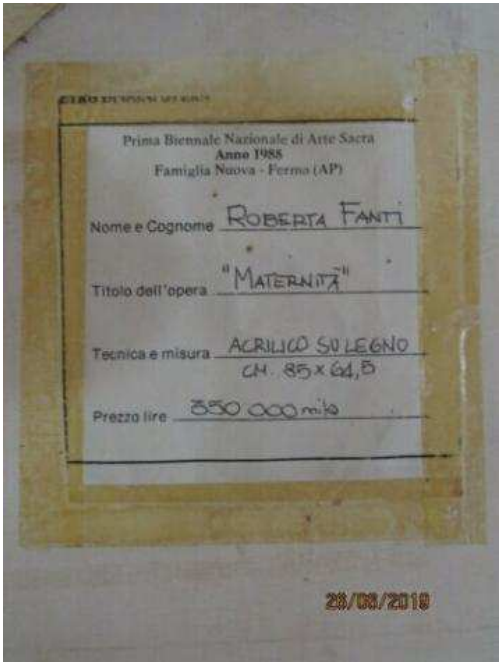 Prima Biennale Nazionale di Arte Sacra
Anno 1988
Famiglia Nuova - Fermo (AP)
Nome e Cognome ROBERTA FANTI
Titolo dell'opera "MATERNITÀ"
Tecnica e misura ACRILICO SU LEGNO
CM. 85 x 64,5
Prezzo lire 350 000 mila
26/08/2019